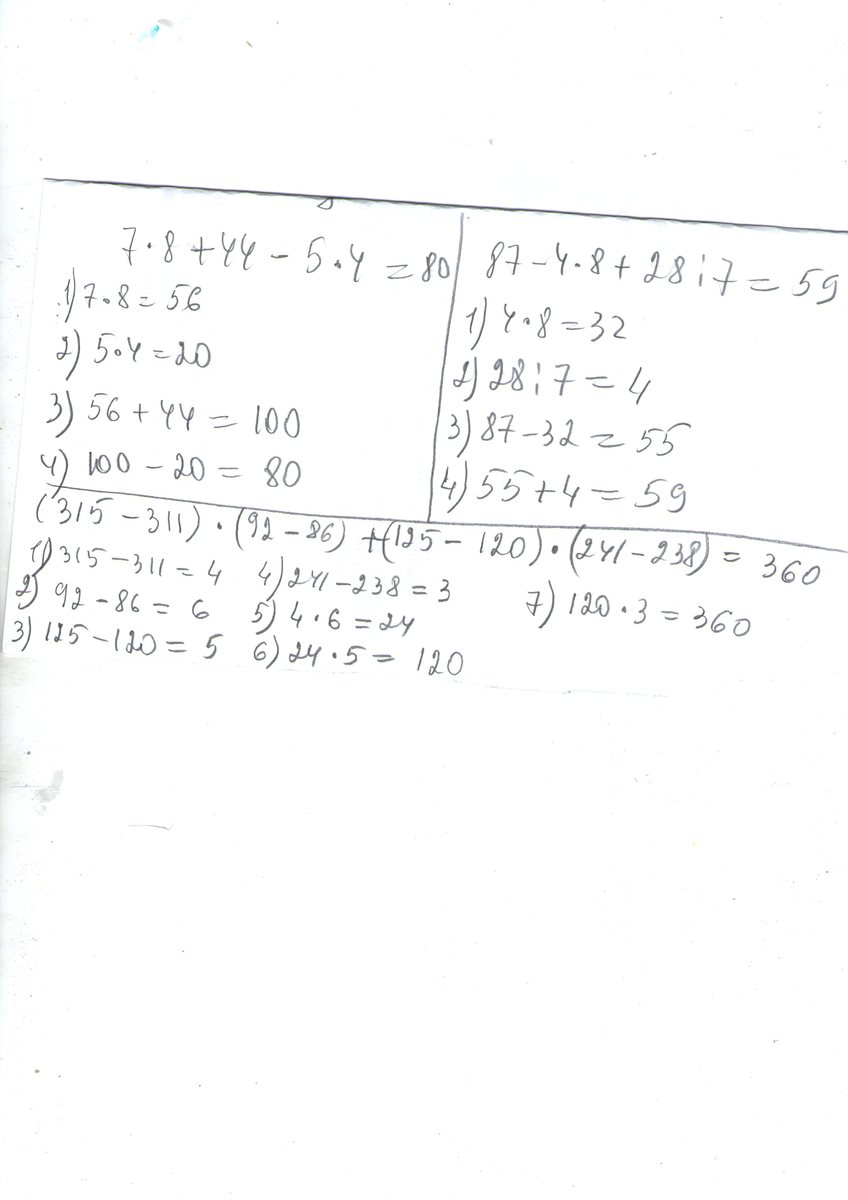 7·8+44-5·4=80
1) 7·8=56
2) 5·4=20
3) 56+44=100
4) 100-20=80
87-4·8+28:7=59
1) 4·8=32
2) 28:7=4
3) 87-32=55
4) 55+4=59
(315-311)·(92-86)+(125-120)·(241-238)=360
1) 315-311=4
2) 92-86=6
3) 125-120=5
4) 241-238=3
5) 4·6=24
6) 24·5=120
7) 120·3=360